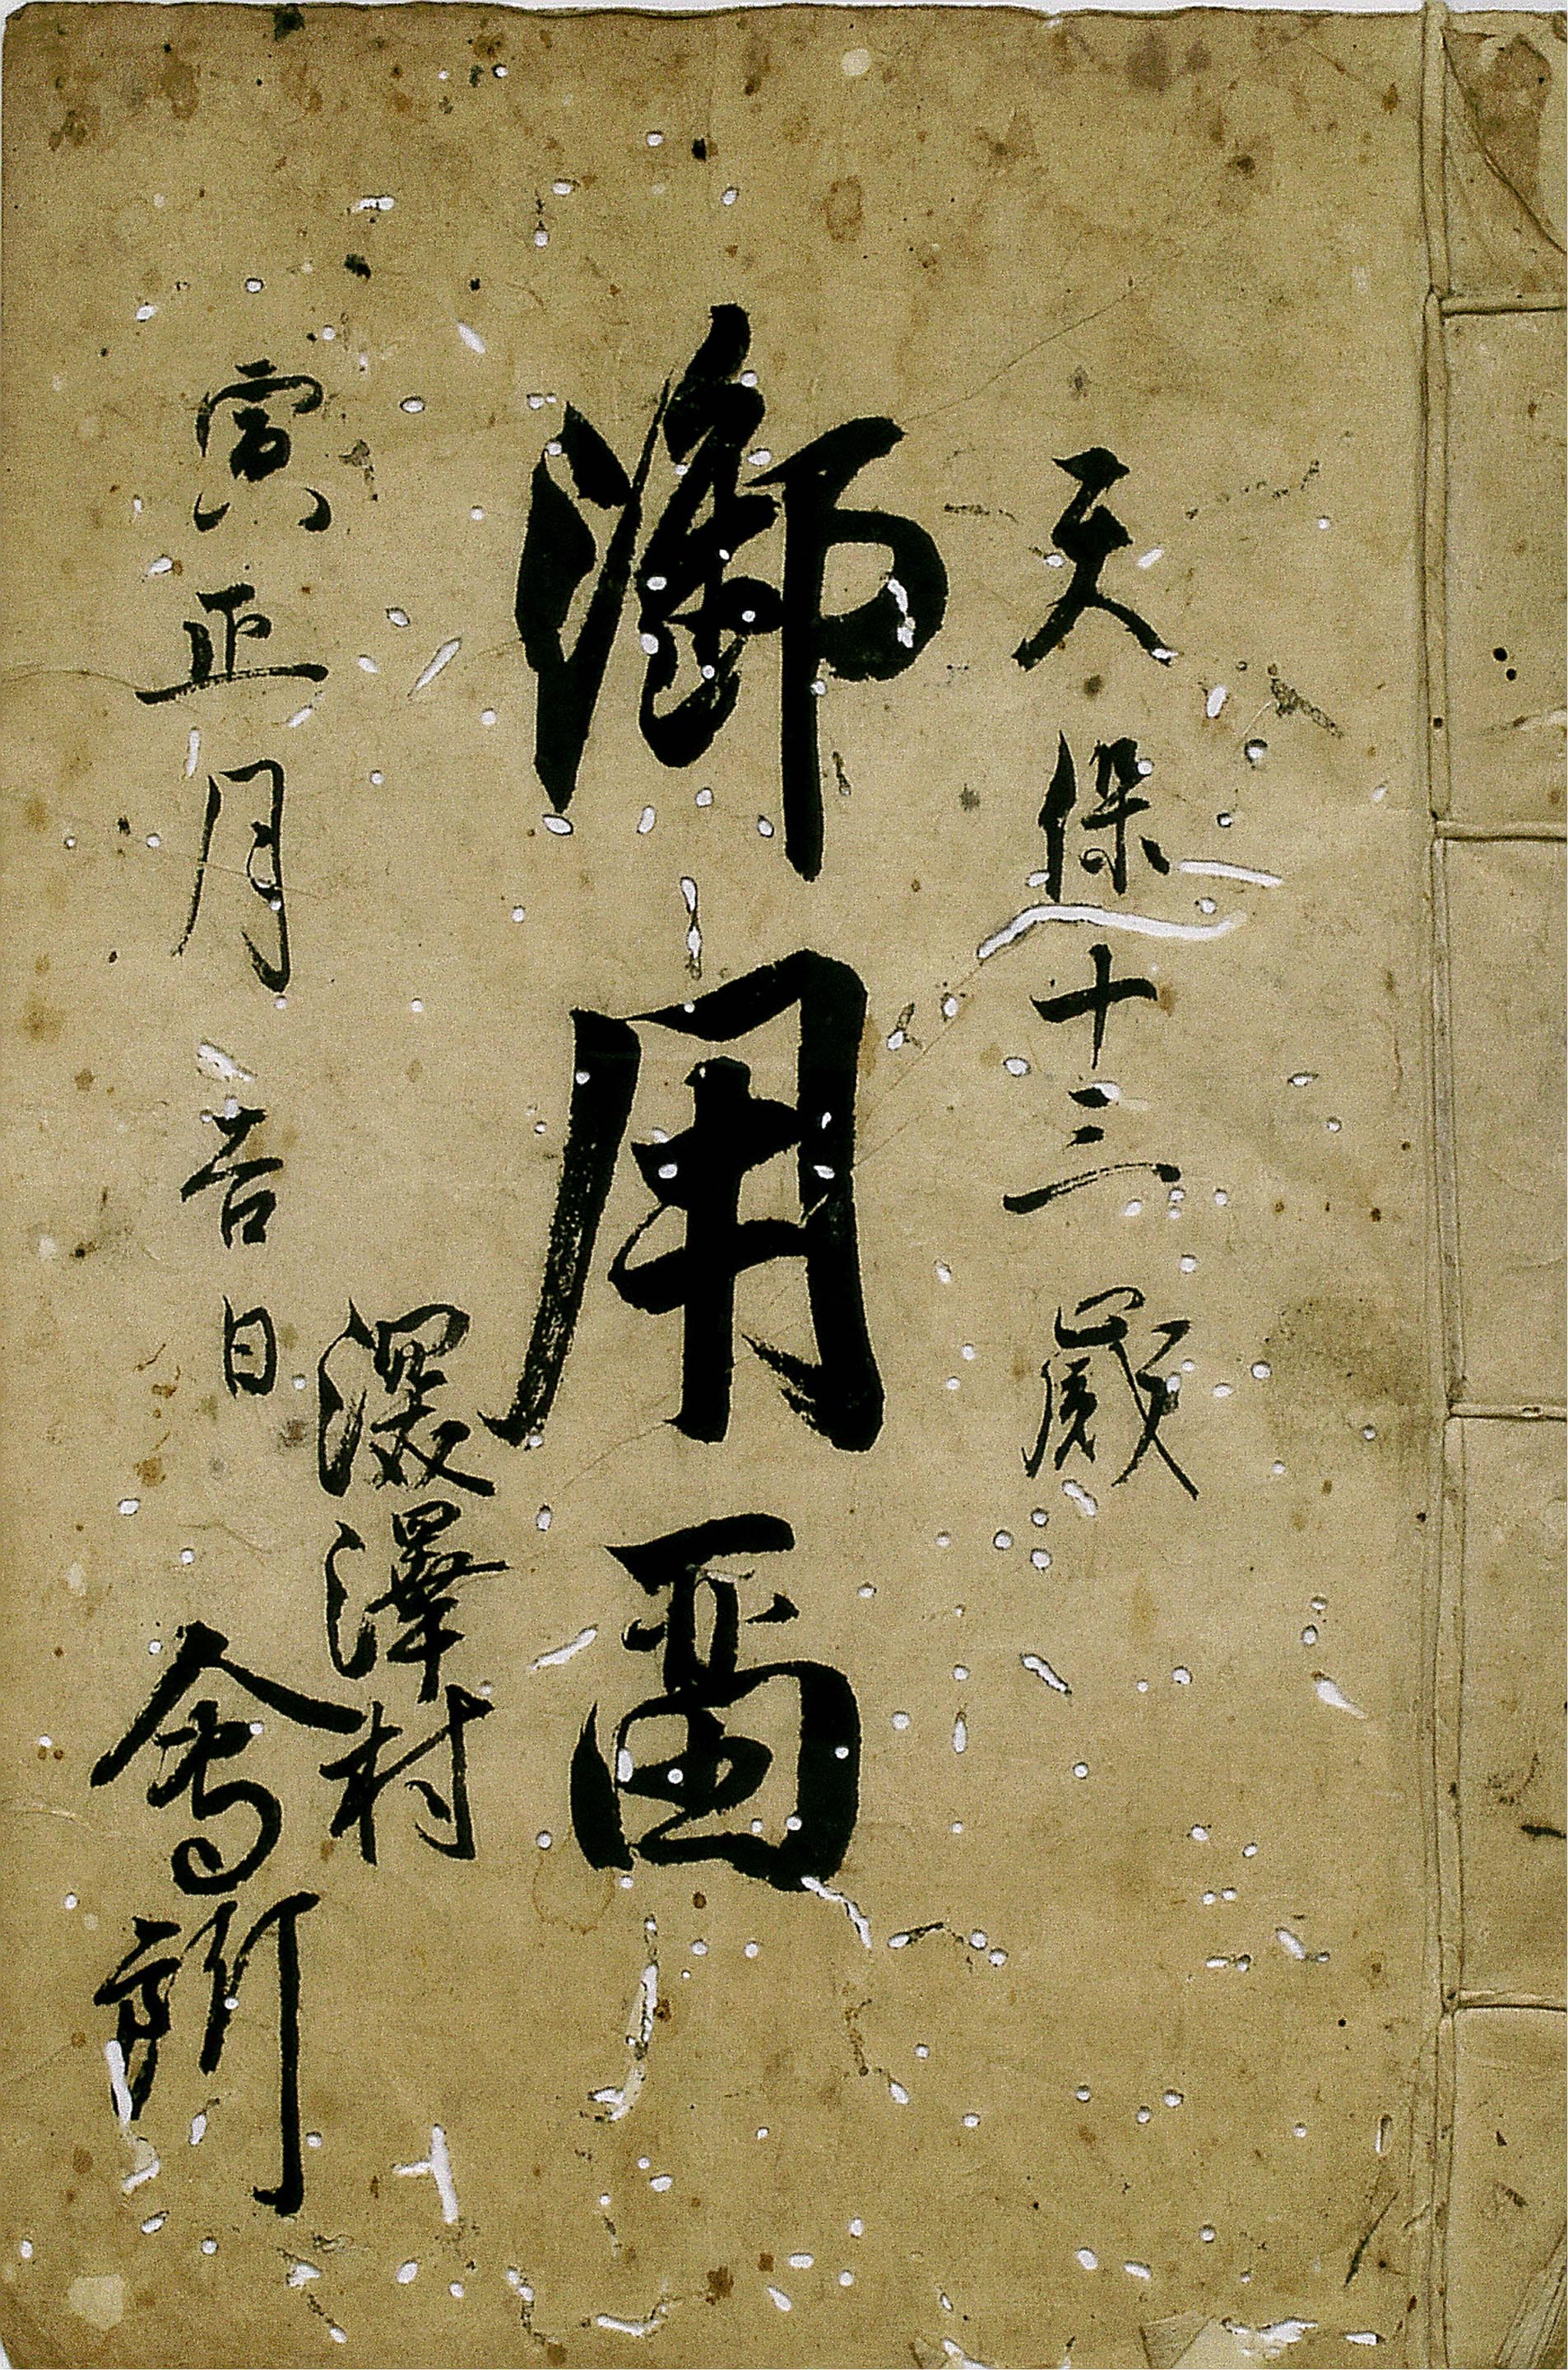 天保十三歳
御用留
寅正月吉日
深澤村
會所